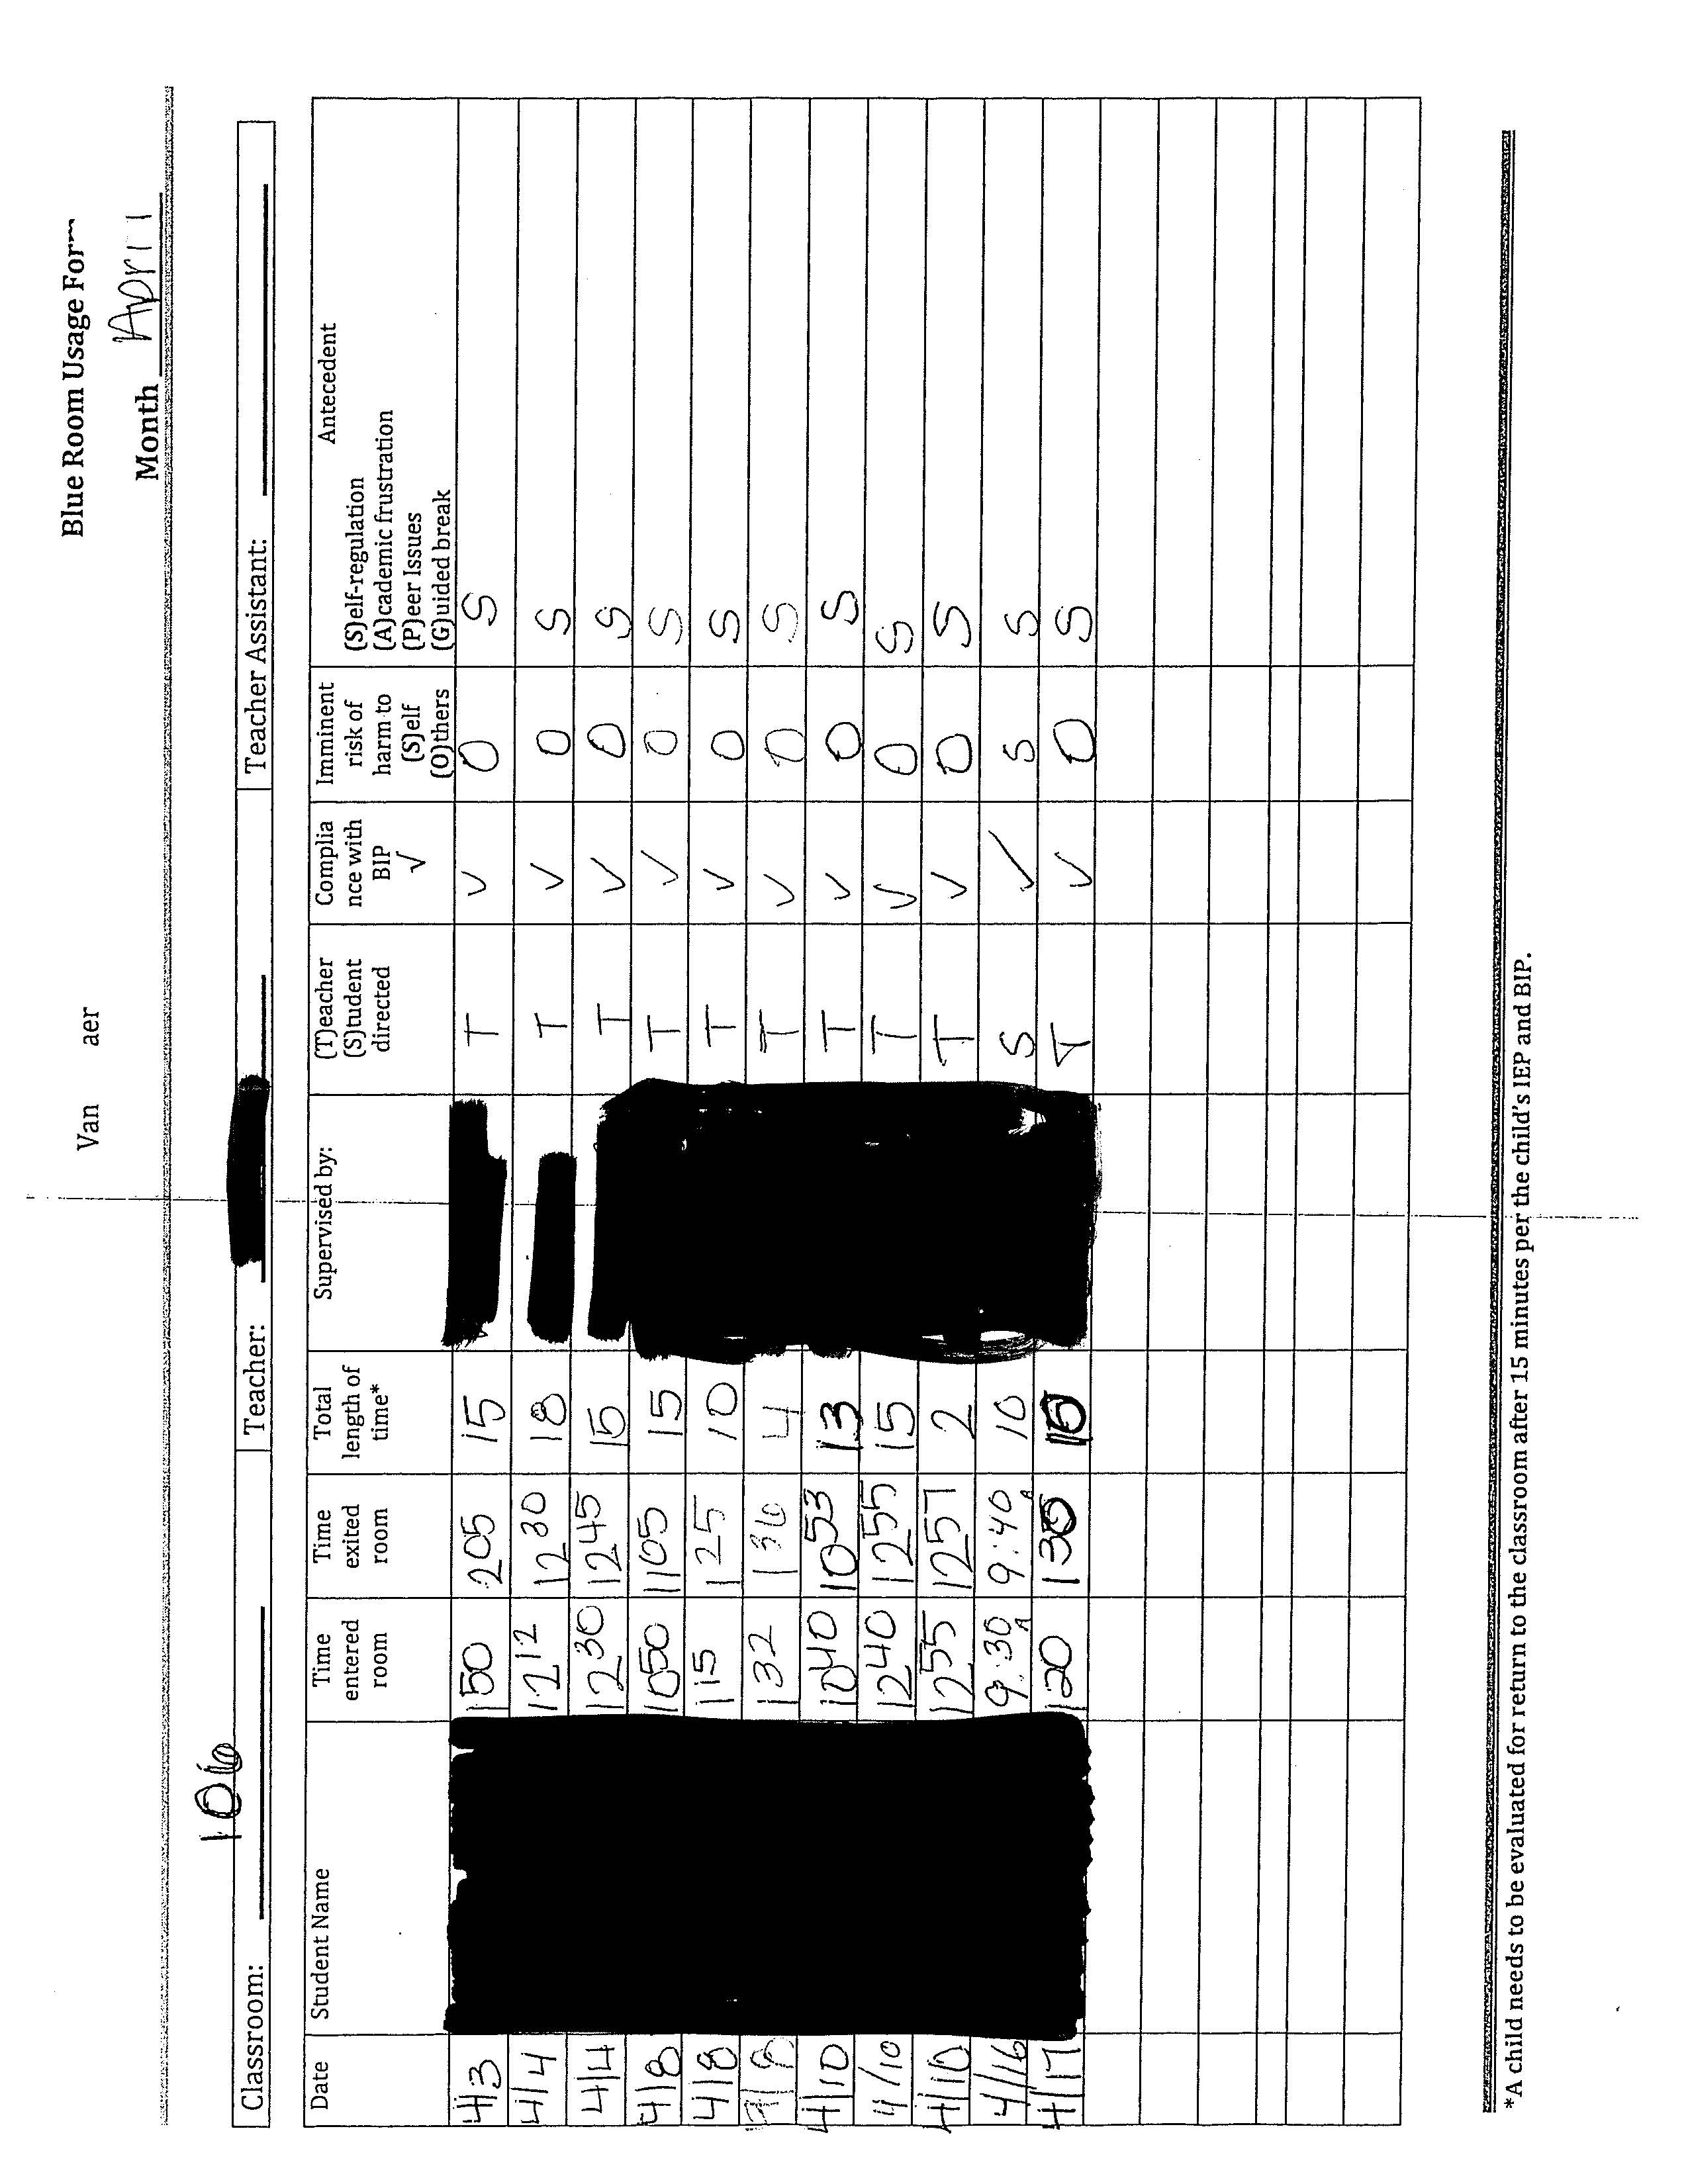 Van aer
Blue Room Usage Form
Month April
106
Classroom: Teacher: Teacher Assistant:
Date Student Name Time entered room Time exited room Total length of time* Supervised by: (T)eacher (S)tudent directed Complia nce with BIP √ Imminent risk of harm to (S)elf (O)thers Antecedent (S)elf-regulation (A)cademic frustration (P)eer Issues (G)uided break
4/3 150 205 15 T √ O S
4/4 1212 1230 18 T √ O S
4/4 1230 1245 15 T √ O S
4/8 1050 1105 15 T √ O S
4/8 115 125 10 T √ O S
4/8 132 136 4 T √ O S
4/10 1040 1053 13 T √ O S
4/10 1240 1255 15 T √ O S
4/10 1255 1257 2 T √ O S
4/16 9:30 A 9:40 A 10 S √ S S
4/17 120 130 10 T √ O S
*A child needs to be evaluated for return to the classroom after 15 minutes per the child's IEP and BIP.